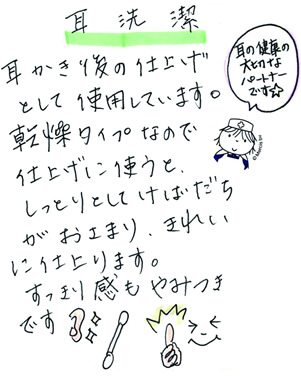 耳洗潔
耳かき後の仕上げ
として使用しています。
乾燥タイプなので
仕上げに使うと、
しっとりとしてけばだち
がおさまり、きれい
に仕上ります。
すっきり感もやみつき
です
耳の健康の
大切な
パートナー
です☆